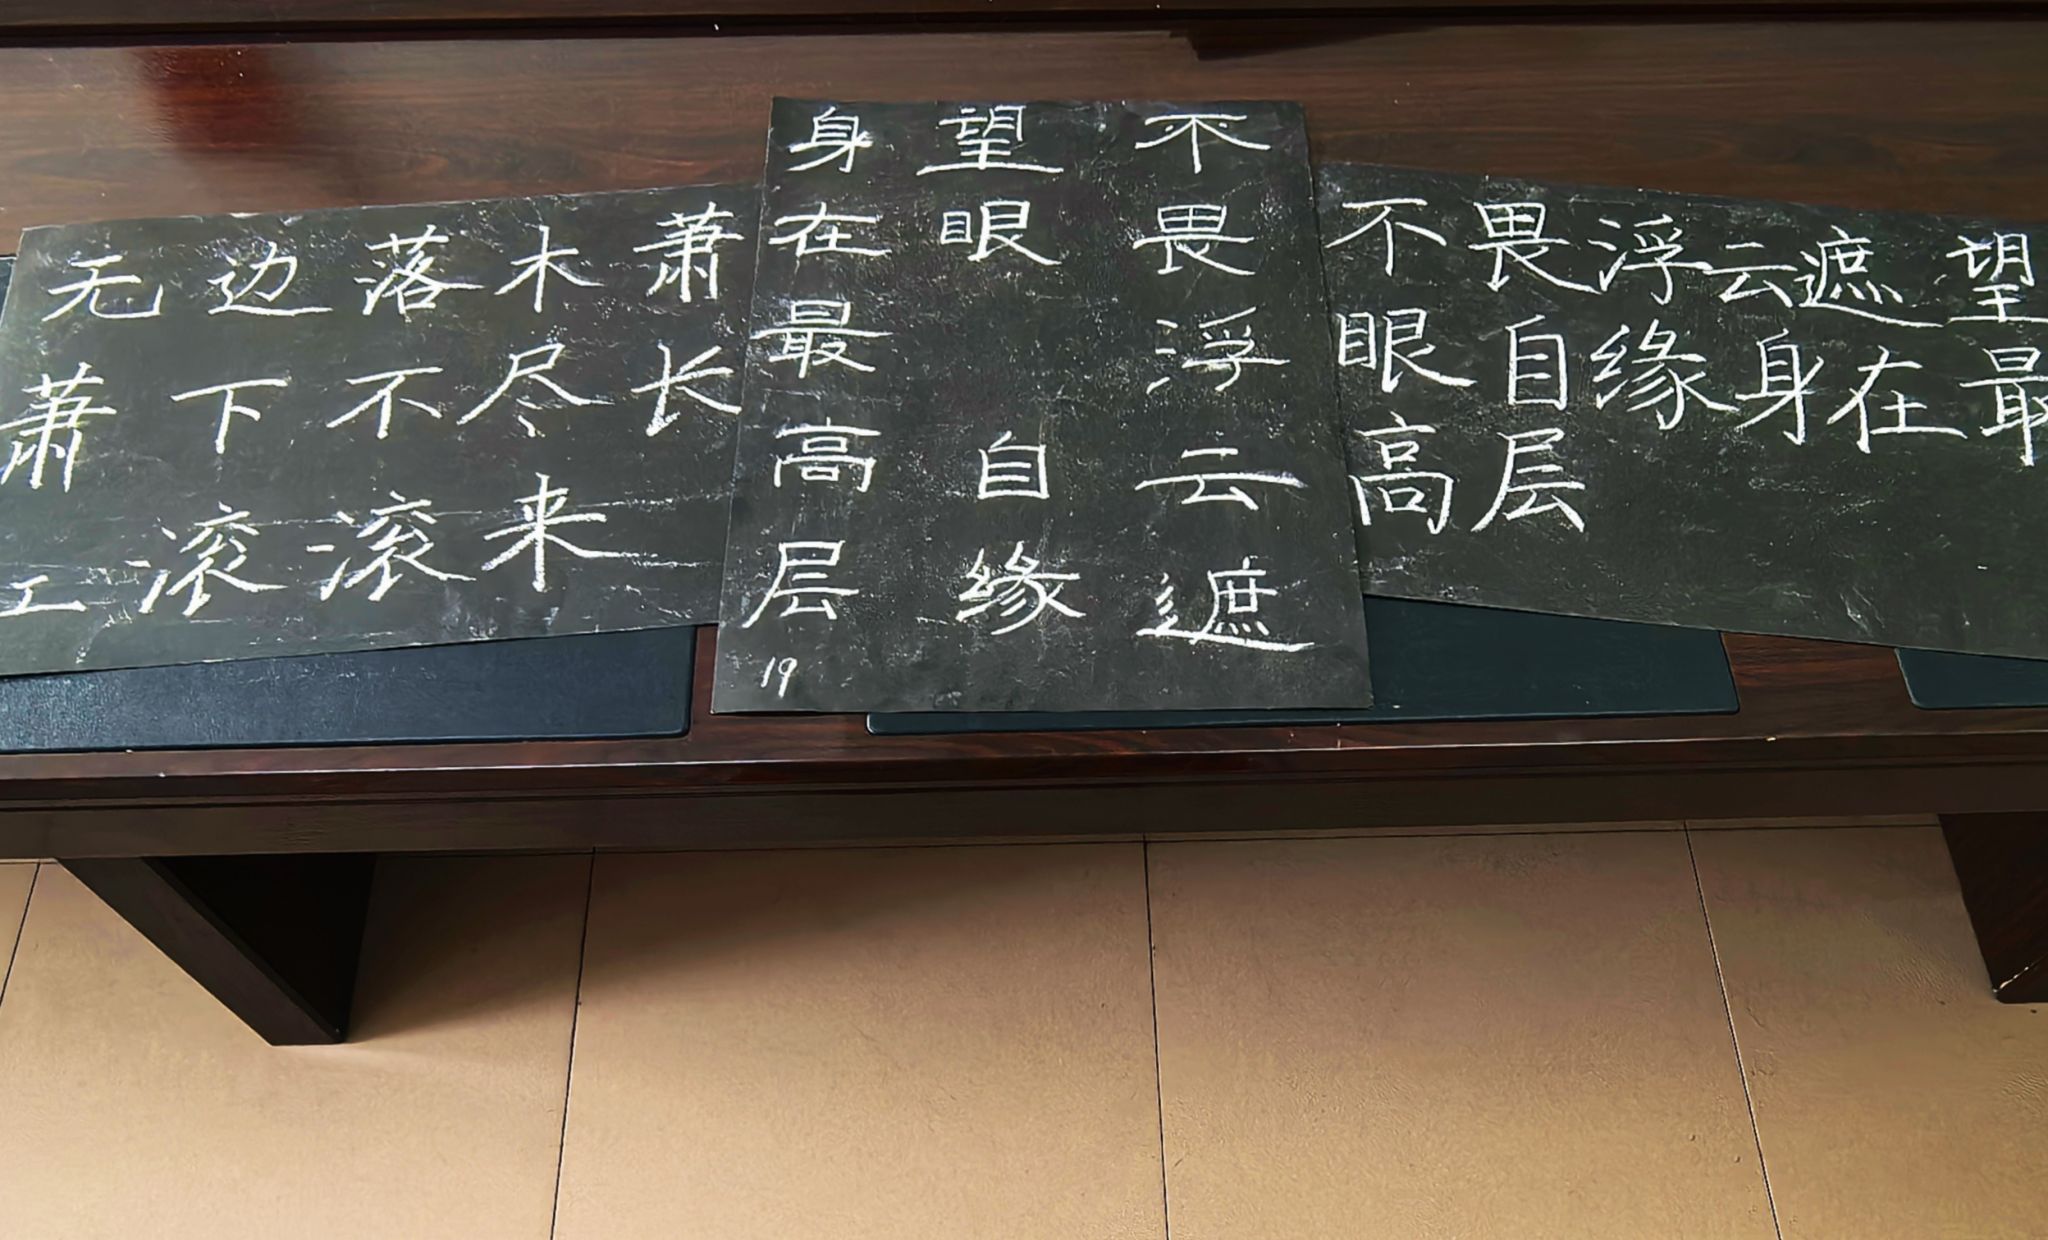 无边落木萧
萧下不尽长
江滚滚来
不畏浮云遮
望眼 自缘
身在最高层
19
不畏浮云遮望
眼自缘身在最
高层